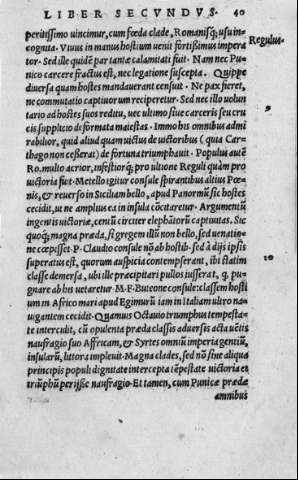 LIBER SECVNDVS. 40
peritissimo uincimur, cum fœda clade, Romanisq; usu in-
cognita. Viuus in manus hostium uenit fortissimus impera
tor. Sed ille quidẽ par tantæ calamitati fuit. Nam nec Pu
nico carcere fractus est, nec legatione suscepta. Quippe
diuersa quam hostes mandauerant censuit. Ne pax fieret,
ne commutatio captiuorum reciperetur. Sed nec illo uolun
tario ad hostes suos reditu, nec ultimo siue carceris seu cru
cis supplicio deformata maiestas. Immo his omnibus admi
rabilior, quid aliud quam uictus de uictoribus ( quia Car-
thago non cesserat) de fortuna triumphauit. Populus autẽ
Ro. multo acrior, infestiorq; pro ultione Reguli quàm pro
uictoria fuit. Metello igitur consule spirantibus altius Poe-
nis, & reuerso in Siciliam bello, apud Panormũ sic hostes
cecidit, ut ne amplius ea in insula cõgitaretur. Argumentũ
ingentis uictoriæ, centũ circiter elephãtorũ captiuitas. Sic
quoq; magna præda, si gregem illũ non bello, sed uenatio-
ne cœpisset. P. Claudio consule nõ ab hostib. sed à dijs ipsis
superatus est, quorum auspicia contempserat, ibi statim
classe demersa, ubi ille præcipitari pullos iusserat, q. pu-
gnare ab his uetaretur. M. F. Buteone consule classem hosti
um in Africo mari apud Egimurũ iam in Italiam ultro na-
uigantem cecidit. Quamuis Octauio triumphus tempesta-
te intercidit, cũ opulenta præda classis aduersis acta uẽtis
naufragio suo Affricam, & Syrtes omniũ imperia gentiũ,
insularũ, littora impleuit. Magna clades, sed nõ sine aliqua
principis populi dignitate intercepta tẽpestate uictoria et
triũphũ perijsse naufragio. Et tamen, cum Punicæ prædæ
omnibus
Regulus.
10